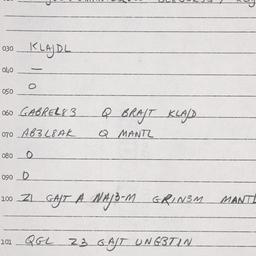 030 KLAJDL
040 —
050 O
060 GABREL83 Q BRAJT KLAJD
070 AB3L8AK Q MANTL
080 O
090 O
100 Z1 GAJT A NAJ3-M GRINSM MANTL
101 QGL Z3 GAJT UNG3TIN